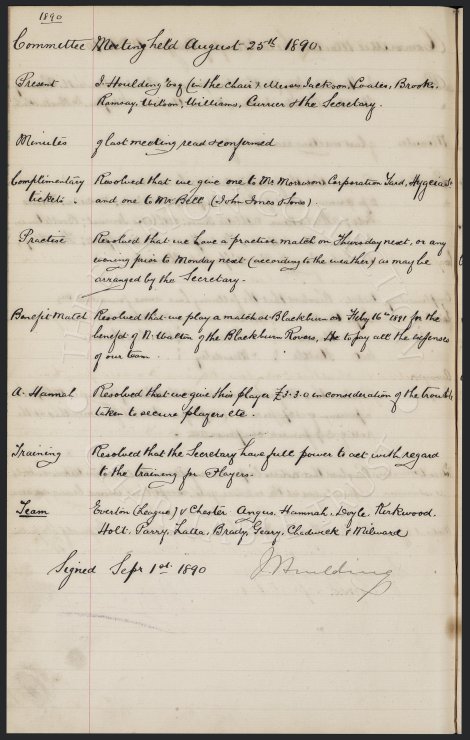 1890
Committee Meeting held August 25th 1890.
Present J Houlding Esq (in the chair) & Messrs Jackson, Coates, Brooks,
Ramsay, Wilson, Williams, Currier & the Secretary.
Minutes of last meeting read & confirmed
Complimentary Resolved that we give one to Mr. Morrison Corporation Yard, Hygeia St
tickets. and one to Mr Bell (John Jones & Sons).
Practise Resolved that we have a practise match on Thursday next, or any
evening prior to Monday next (according to the weather) as may be
arranged by the Secretary.
Benefit Match Resolved that we play a match at Blackburn on Feby 16th 1891 for the
benefit of N. Walton of the Blackburn Rovers, He to pay all the expenses
of our team.
A. Hannah Resolved that we give this player £3.3.0 in consideration of the trouble
taken to secure players etc.
Training Resolved that the Secretary have full power to act with regard
to the training for Players.
Team Everton (League) v Chester Angus. Hannah, Doyle. Kirkwood.
Holt. Parry, Latta, Brady, Geary, Chadwick & Milward
Signed Sepr 1st 1890 J Houlding